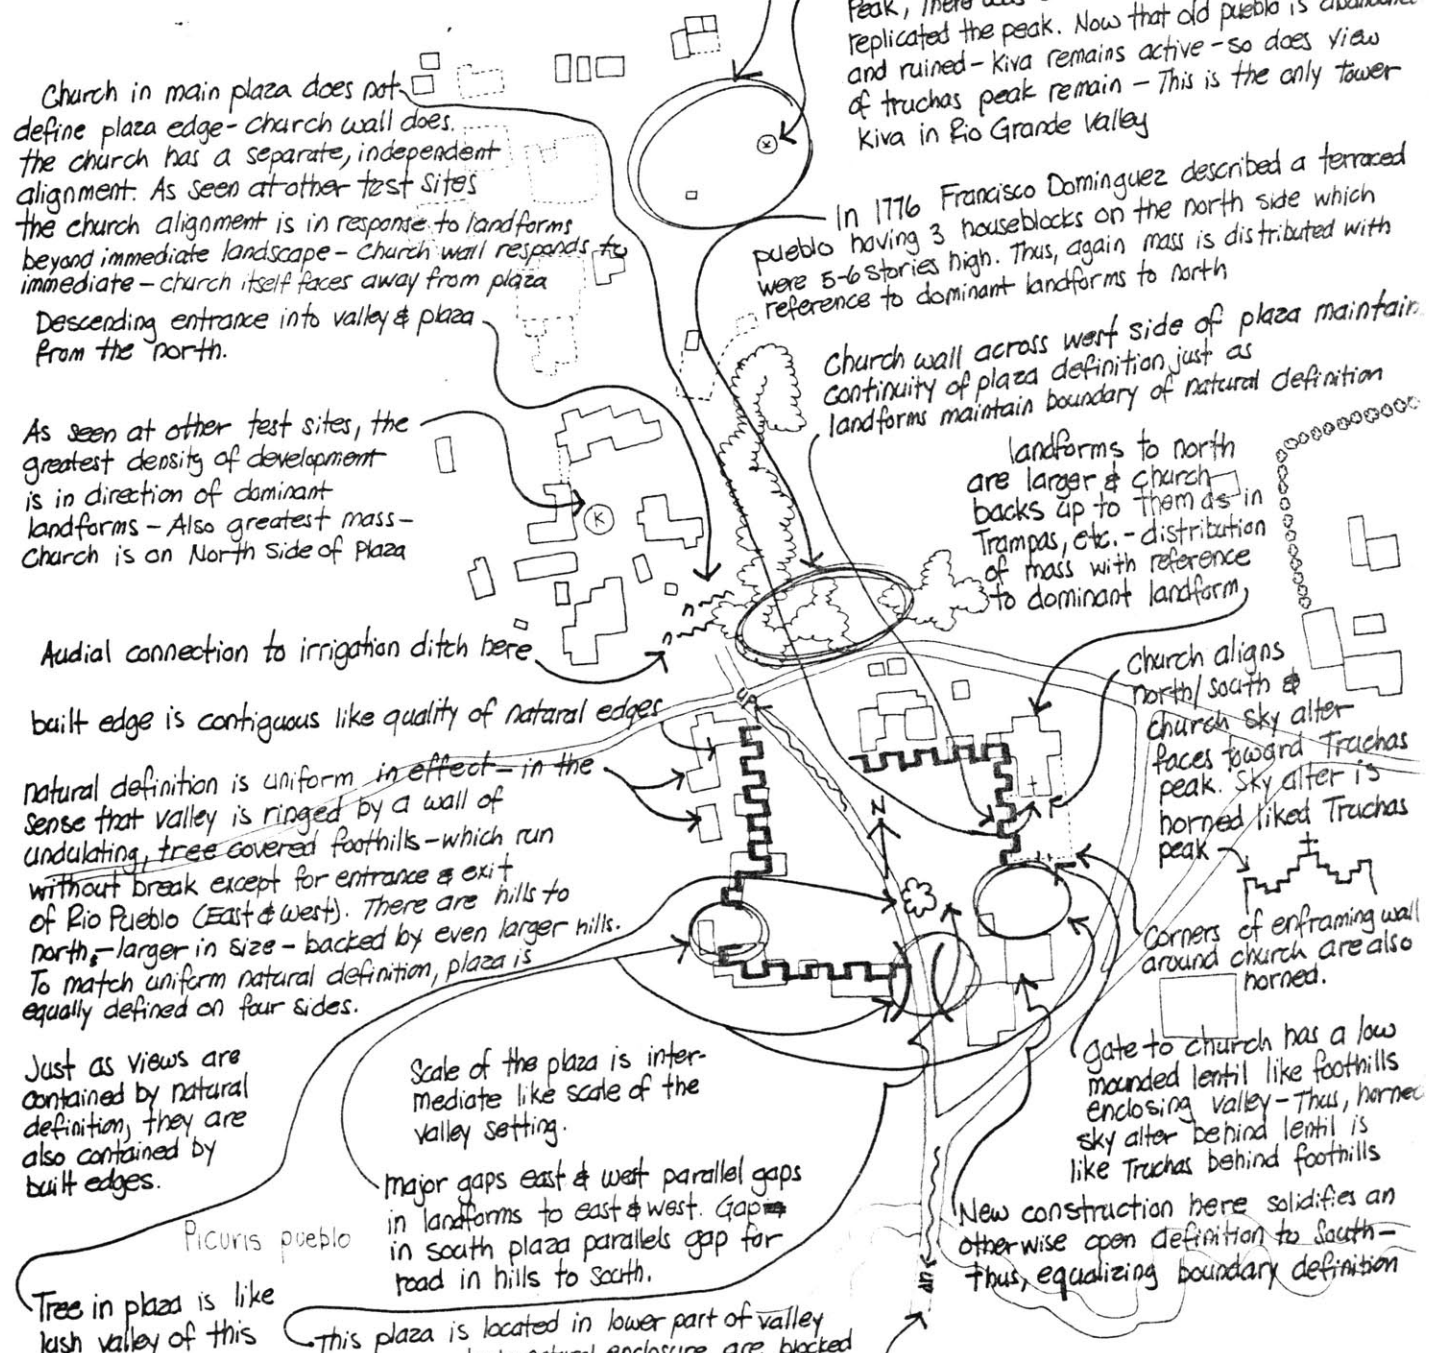 Peak, There was
replicated the peak. Now that old pueblo is abandoned
and ruined – kiva remains active – so does view
of truchas peak remain – This is the only tower
kiva in Rio Grande Valley
Church in main plaza does not
define plaza edge – church wall does.
the church has a separate, independent
alignment. As seen at other test sites
the church alignment is in response to landforms
beyond immediate landscape – church wall responds to
immediate – church itself faces away from plaza
In 1776 Francisco Dominguez described a terraced
pueblo having 3 houseblocks on the north side which
were 5-6 stories high. Thus, again mass is distributed with
reference to dominant landforms to north
Descending entrance into valley & plaza
from the north.
Church wall across west side of plaza maintain
continuity of plaza definition just as
landforms maintain boundary of natural definition
As seen at other test sites, the
greatest density of development
is in direction of dominant
landforms – Also greatest mass –
Church is on North side of Plaza
K
landforms to north
are larger & church
backs up to them as in
Trampas, etc. – distribution
of mass with reference
to dominant landform
Audial connection to irrigation ditch here
Church aligns
north/south &
church sky alter
faces toward Truchas
peak. Sky alter is
horned liked Truchas
peak
built edge is contiguous like quality of natural edges
UP
N
natural definition is uniform in effect – in the
sense that valley is ringed by a wall of
undulating, tree covered foothills – which run
without break except for entrance & exit
of Rio Pueblo (East & West). There are hills to
north, – larger in size – backed by even larger hills.
To match uniform natural definition, plaza is
equally defined on four sides.
Corners of enframing wall
around church are also
horned.
Just as views are
contained by natural
definition, they are
also contained by
built edges.
Scale of the plaza is inter-
mediate like scale of the
valley setting.
gate to church has a low
mounded lentil like foothills
enclosing valley – Thus, horned
sky alter behind lentil is
like Truchas behind foothills
Major gaps east & west parallel gaps
in landforms to east & west. Gap
in south plaza parallels gap for
road in hills to south.
New construction here solidifies an
otherwise open definition to South –
thus, equalizing boundary definition
UP
Picuris pueblo
Tree in plaza is like
lush valley of this
This plaza is located in lower part of valley
natural enclosure are blocked